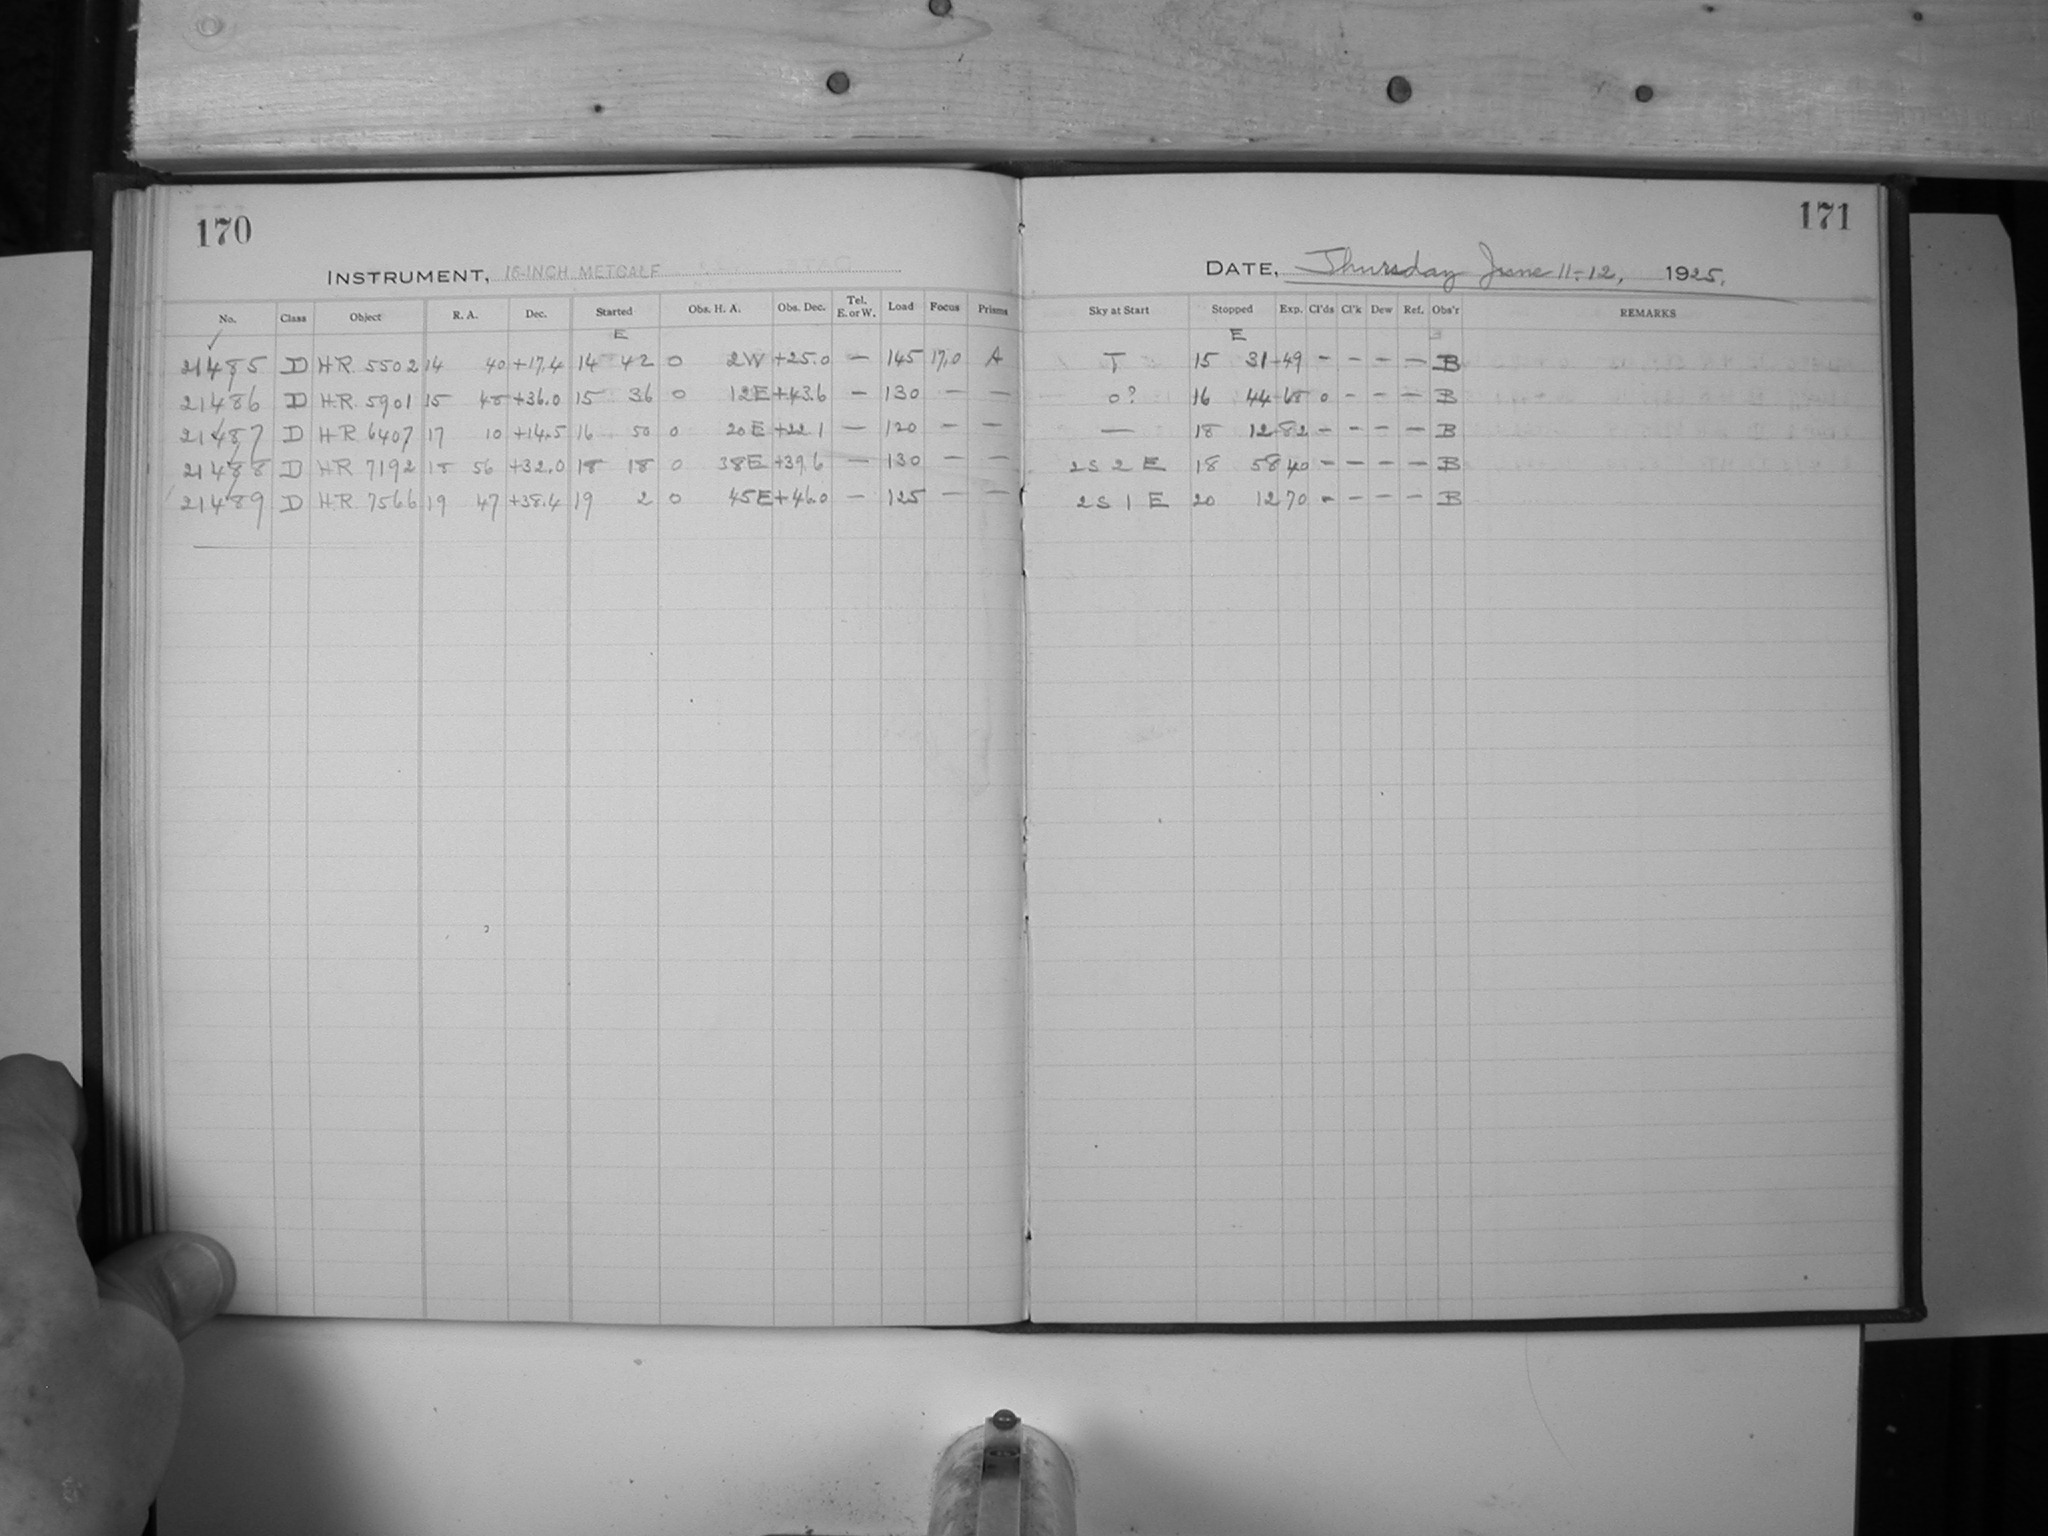 170
INSTRUMENT, 16-INCH METCALF
No. Class Object R. A. Dec. Started Obs. H. A. Obs. Dec. Tel. E. or W. Load Focus Prisms
E
21485 D H.R. 5502 14 40 +17.4 14 42 0 2W +25.0 — 145 17.0 A
21486 D H.R. 5901 15 48 +36.0 15 36 0 12E +43.6 — 130 — —
21487 D H.R. 6407 17 10 +14.5 16 50 0 20E +22.1 — 120 — —
21488 D H.R. 7192 18 56 +32.0 18 18 0 38E +39.6 — 130 — —
21489 D H.R. 7566 19 47 +38.4 19 2 0 45E +46.0 — 125 — —
171
DATE, Thursday June 11-12, 1925.
Sky at Start Stopped Exp. Cl'ds Cl'k Dew Ref. Obs'r REMARKS
E
T 15 31 49 - - - - B
0? 16 44 68 0 - - - B
— 18 12 82 - - - - B
2S 2 E 18 58 40 - - - - B
2S 1 E 20 12 70 - - - - B